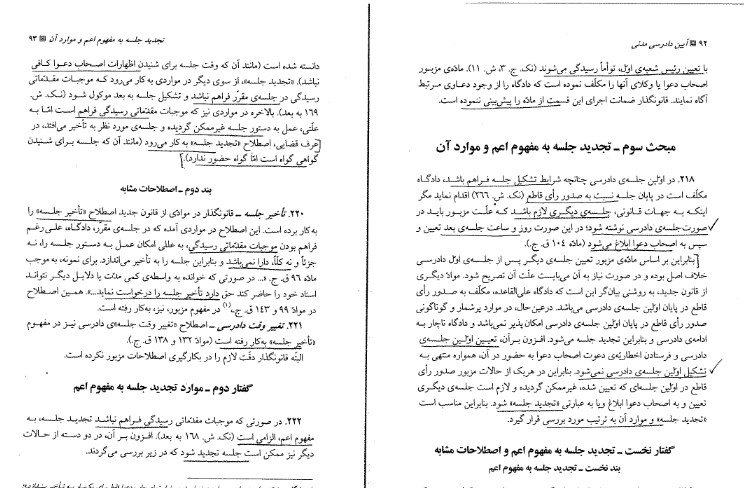 ۹۲ آیین دادرسی مدنی
با تعیین رئیس شعبه‌ی اوّل، توأماً رسیدگی می‌شوند (نک. ج. ۳، ش. ۱۱). ماده‌ی مزبور
اصحاب دعوا یا وکلای آنها را مکلّف نموده است که دادگاه را از وجود دعاوی مرتبط
آگاه نمایند. قانونگذار ضمانت اجرای این قسمت از ماده را پیش‌بینی ننموده است.
مبحث سوم ـ تجدید جلسه به مفهوم اعم و موارد آن
۲۱۸. در اوّلین جلسه‌ی دادرسی چنانچه شرایط تشکیل جلسه فراهم باشد، دادگاه
مکلّف است در پایان جلسه نسبت به صدور رأی قاطع (نک. ش. ۲۶۶) اقدام نماید مگر
اینکه به جهات قانونی، جلسه‌ی دیگری لازم باشد که علّت مزبور باید در
صورت‌جلسه‌ی دادرسی نوشته شود؛ در این صورت روز و ساعت جلسه‌ی بعد تعیین و
سپس به اصحاب دعوا ابلاغ می‌شود (ماده‌ی ۱۰۴ ق.ج.).
بنابراین بر اساس ماده‌ی مزبور تعیین جلسه‌ی دیگری پس از جلسه‌ی اوّل دادرسی
خلاف اصل بوده و در صورت نیاز به آن می‌بایست علّت آن تصریح شود. مواد دیگری
از قانون جدید، به روشنی بیان‌گر این است که دادگاه علی‌القاعده، مکلّف به صدور رأی
قاطع در پایان اوّلین جلسه‌ی دادرسی می‌باشد. درعین‌حال، در موارد پرشمار و گوناگونی
صدور رأی قاطع در پایان اوّلین جلسه‌ی دادرسی امکان پذیر نمی‌باشد و دادگاه ناچار به
ادامه‌ی دادرسی و بنابراین تجدید جلسه می‌شود. افزون بر آن، تعیین اوّلین جلسه‌ی
دادرسی و فرستادن اخطاریّه‌ی دعوت اصحاب دعوا به حضور در آن، همواره منتهی به
تشکیل اوّلین جلسه‌ی دادرسی نمی‌شود. بنابراین در هریک از حالات مزبور صدور رأی
قاطع در اوّلین جلسه‌ای که تعیین شده، غیرممکن گردیده و لازم است جلسه‌ی دیگری
تعیین و به اصحاب دعوا ابلاغ و یا به عبارتی «تجدید جلسه» شود. بنابراین مناسب است
«تجدید جلسه» و موارد آن به ترتیب مورد بررسی قرار گیرد.
گفتار نخست ـ تجدید جلسه به مفهوم اعم و اصطلاحات مشابه
بند نخست ـ تجدید جلسه به مفهوم اعم
تجدید جلسه به مفهوم اعم و موارد آن ۹۳
دانسته شده است (مانند آن که وقت جلسه برای شنیدن اظهارات اصحاب دعوا کافی
نباشد). «تجدید جلسه»، از سوی دیگر در مواردی به کار می‌رود که موجبات مقدّماتی
رسیدگی در جلسه‌ی مقرّر فراهم نباشد و تشکیل جلسه به بعد موکول شود (نک. ش.
۱۶۹ به بعد). بالاخره در مواردی نیز که موجبات مقدّماتی رسیدگی فراهم است امّا به
علّتی، عمل به دستور جلسه غیرممکن گردیده و جلسه‌ی مورد نظر به تأخیر می‌افتد، در
عرف قضایی، اصطلاح «تجدید جلسه» به کار می‌رود (مانند آن که جلسه برای شنیدن
گواهی گواه است امّا گواه حضور ندارد).
بند دوم ـ اصطلاحات مشابه
۲۲۰. تأخیر جلسه ـ قانونگذار در موادّی از قانون جدید اصطلاح «تأخیر جلسه» را
به کار برده است. این اصطلاح در مواردی آمده که در جلسه‌ی مقرّره دادگاه، علی‌رغم
فراهم بودن موجبات مقدّماتی رسیدگی، به عللی امکان عمل به دستور جلسه را، نه
جزئاً و نه کلاً، دارا نمی‌باشد و بنابراین جلسه را به تأخیر می‌اندازد. برای نمونه، به موجب
ماده‌ی ۹۶ ق.ج. «... در صورتی که خوانده به واسطه‌ی کمی مدت یا دلایل دیگر نتواند
اسناد خود را حاضر کند حق دارد تأخیر جلسه را درخواست نماید...». همین اصطلاح
در مواد ۹۹ و ۱۴۳ ق.ج.(۱) در مفهوم مزبور، نیز، به‌کار رفته است.
۲۲۱. تغییر وقت دادرسی ـ اصطلاح «تغییر وقت جلسه‌ی دادرسی نیز در مفهوم
«تأخیر جلسه» به‌کار رفته است (مواد ۱۳۲ و ۱۳۸ ق.ج.).
البتّه قانونگذار دقّت لازم را در بکارگیری اصطلاحات مزبور نکرده است.
گفتار دوم ـ موارد تجدید جلسه به مفهوم اعم
۲۲۲. در صورتی که موجبات مقدّماتی رسیدگی فراهم نباشد تجدید جلسه، به
مفهوم اعم، الزامی است (نک. ش. ۱۶۸ به بعد). افزون بر آن، در دو دسته از حالات
دیگر نیز ممکن است جلسه تجدید شود که در زیر بررسی می‌گردند.